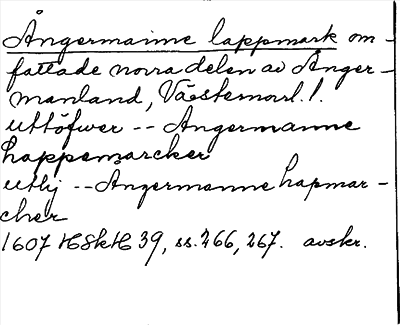 Ångermanne lappmark om-
fattade norra delen av Ånger-
manland, Västernorrl. l.
uttöfwer -- Angermanne
Lappemarcker
utij -- Angermanne Lapmar-
cher
1607 HSkH 39, ss. 266, 267. avskr.